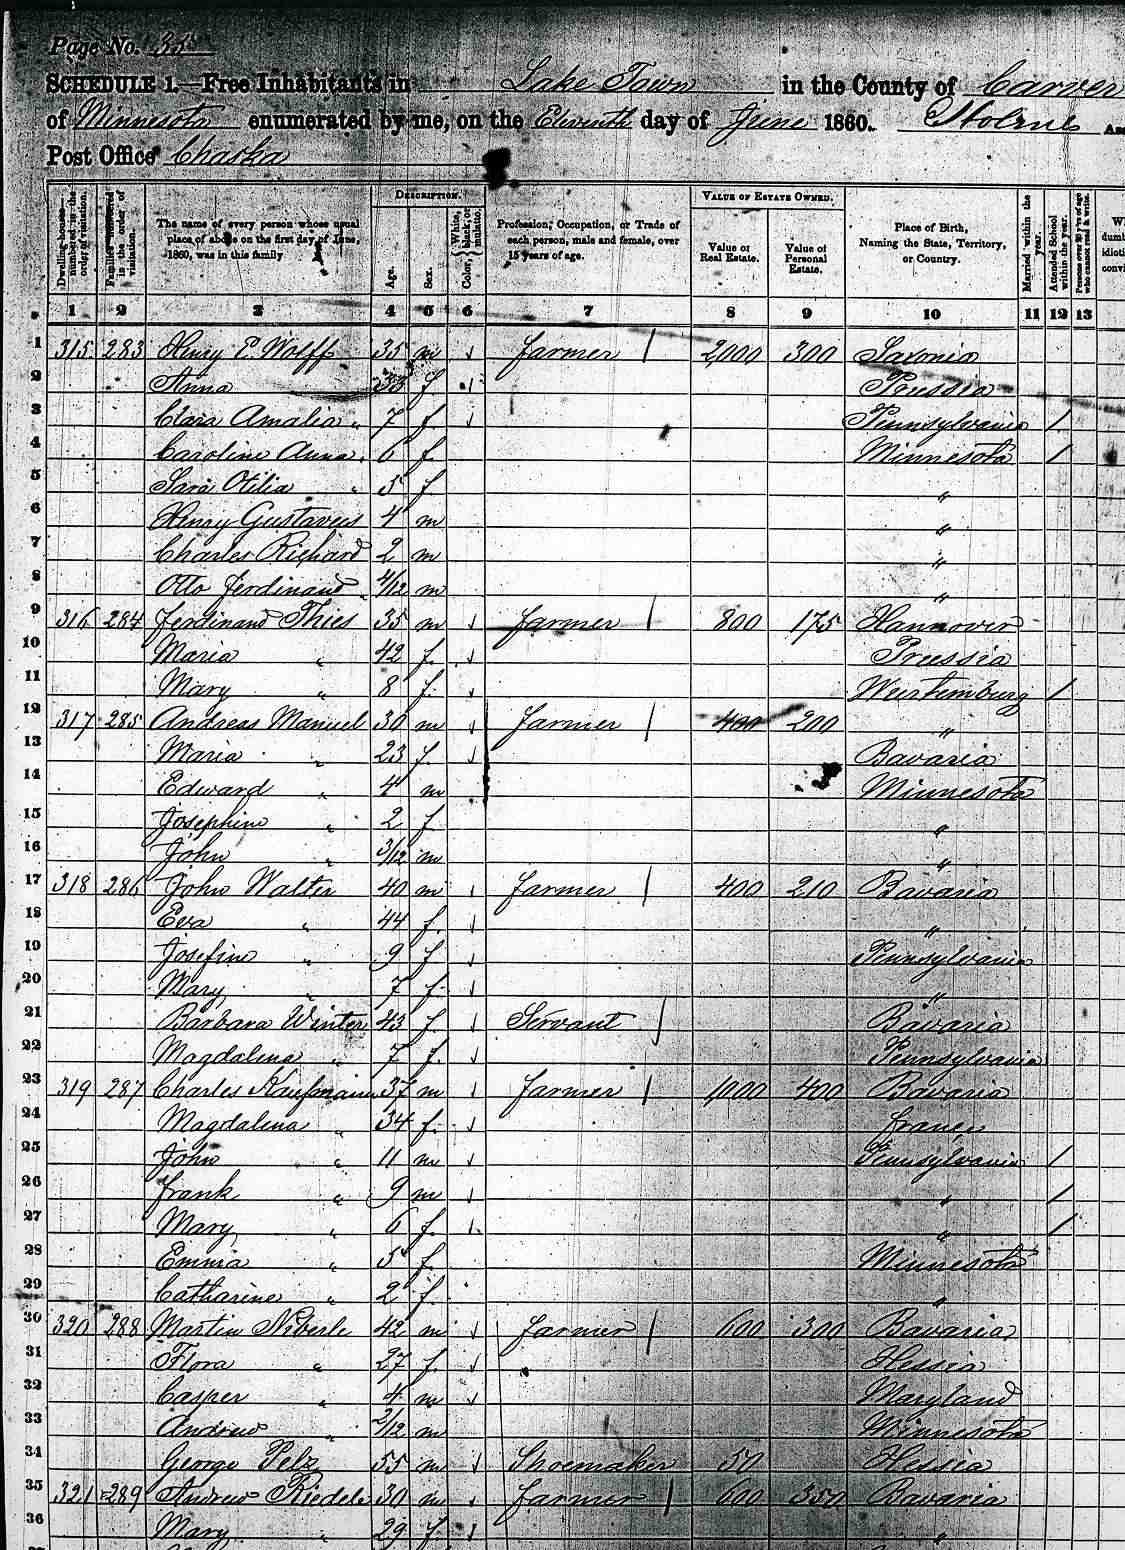 Page No. 35
SCHEDULE 1.—Free Inhabitants in Lake Town in the County of Carver
of Minnesota enumerated by me, on the Eleventh day of June 1860.
Post Office Chaska
DESCRIPTION. VALUE OF ESTATE OWNED.
Dwelling-houses numbered in the order of visitation. Families numbered in the order of visitation. The name of every person whose usual place of abode on the first day of June, 1860, was in this family Age. Sex. Color, { White, black, or mulatto. Profession, Occupation, or Trade of each person, male and female, over 15 years of age. Value of Real Estate. Value of Personal Estate. Place of Birth, Naming the State, Territory, or Country. Married within the year. Attended School within the year. Persons over 20 y'rs of age who cannot read & write.
1 2 3 4 5 6 7 8 9 10 11 12 13
1 315 283 Henry E. Wolff 35 m farmer 2,000 300 Saxonia
2 Anna 33 f Prussia
3 Clara Amalia " 7 f Pennsylvania /
4 Caroline Anna " 6 f Minnesota /
5 Sara Otilia " 5 f "
6 Henry Gustavus 4 m "
7 Charles Richard 2 m "
8 Otto Ferdinand " 4/12 m "
9 316 284 Ferdinand Thies 35 m farmer 800 175 Hannover
10 Maria " 42 f Prussia
11 Mary " 8 f Wurtemburg /
12 317 285 Andreas Manuel 30 m farmer 400 200 "
13 Maria " 23 f Bavaria
14 Edward " 4 m Minnesota
15 Josephine " 2 f "
16 John " 3/12 m "
17 318 286 John Walter 40 m farmer 400 210 Bavaria
18 Eva " 44 f "
19 Josefine " 9 f Pennsylvania
20 Mary " 7 f "
21 Barbara Winter 43 f Servant Bavaria
22 Magdalena " 7 f Pennsylvania
23 319 287 Charles Kaufmann 37 m farmer 1,000 400 Bavaria
24 Magdalena " 34 f France
25 John " 11 m Pennsylvania /
26 Frank " 9 m " /
27 Mary " 6 f " /
28 Emma " 5 f Minnesota
29 Catharine " 2 f "
30 320 288 Martin 42 m farmer 600 300 Bavaria
31 Flora " 27 f Hessia
32 Casper " 4 m Maryland
33 Andrew " 2/12 m Minnesota
34 George Pelz 55 m Shoemaker 50 Hessia
35 321 289 Andrew Riedele 30 m farmer 600 350 Bavaria
36 Mary " 29 f "